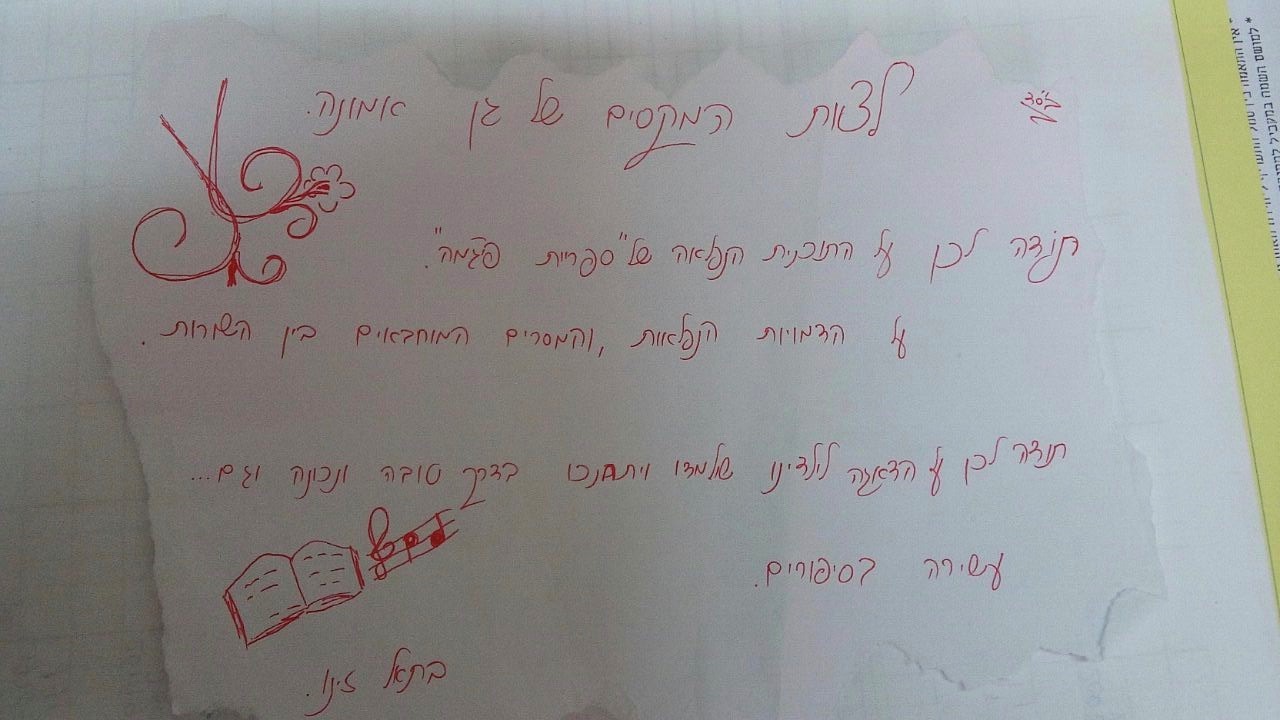 בס"ד
לצוות המקסים של גן אמונה.
תודה לכן על התוכנית הנפלאה של "ספריית פיג'מה".
על הדמויות הנפלאות, והמסרים המוחבאים בין השורות.
תודה לכן על הדאגה לילדינו שלמדו ויתחנכו בדרך טובה ונכונה וגם...
עשירה בסיפורים.
בתאל זינו.